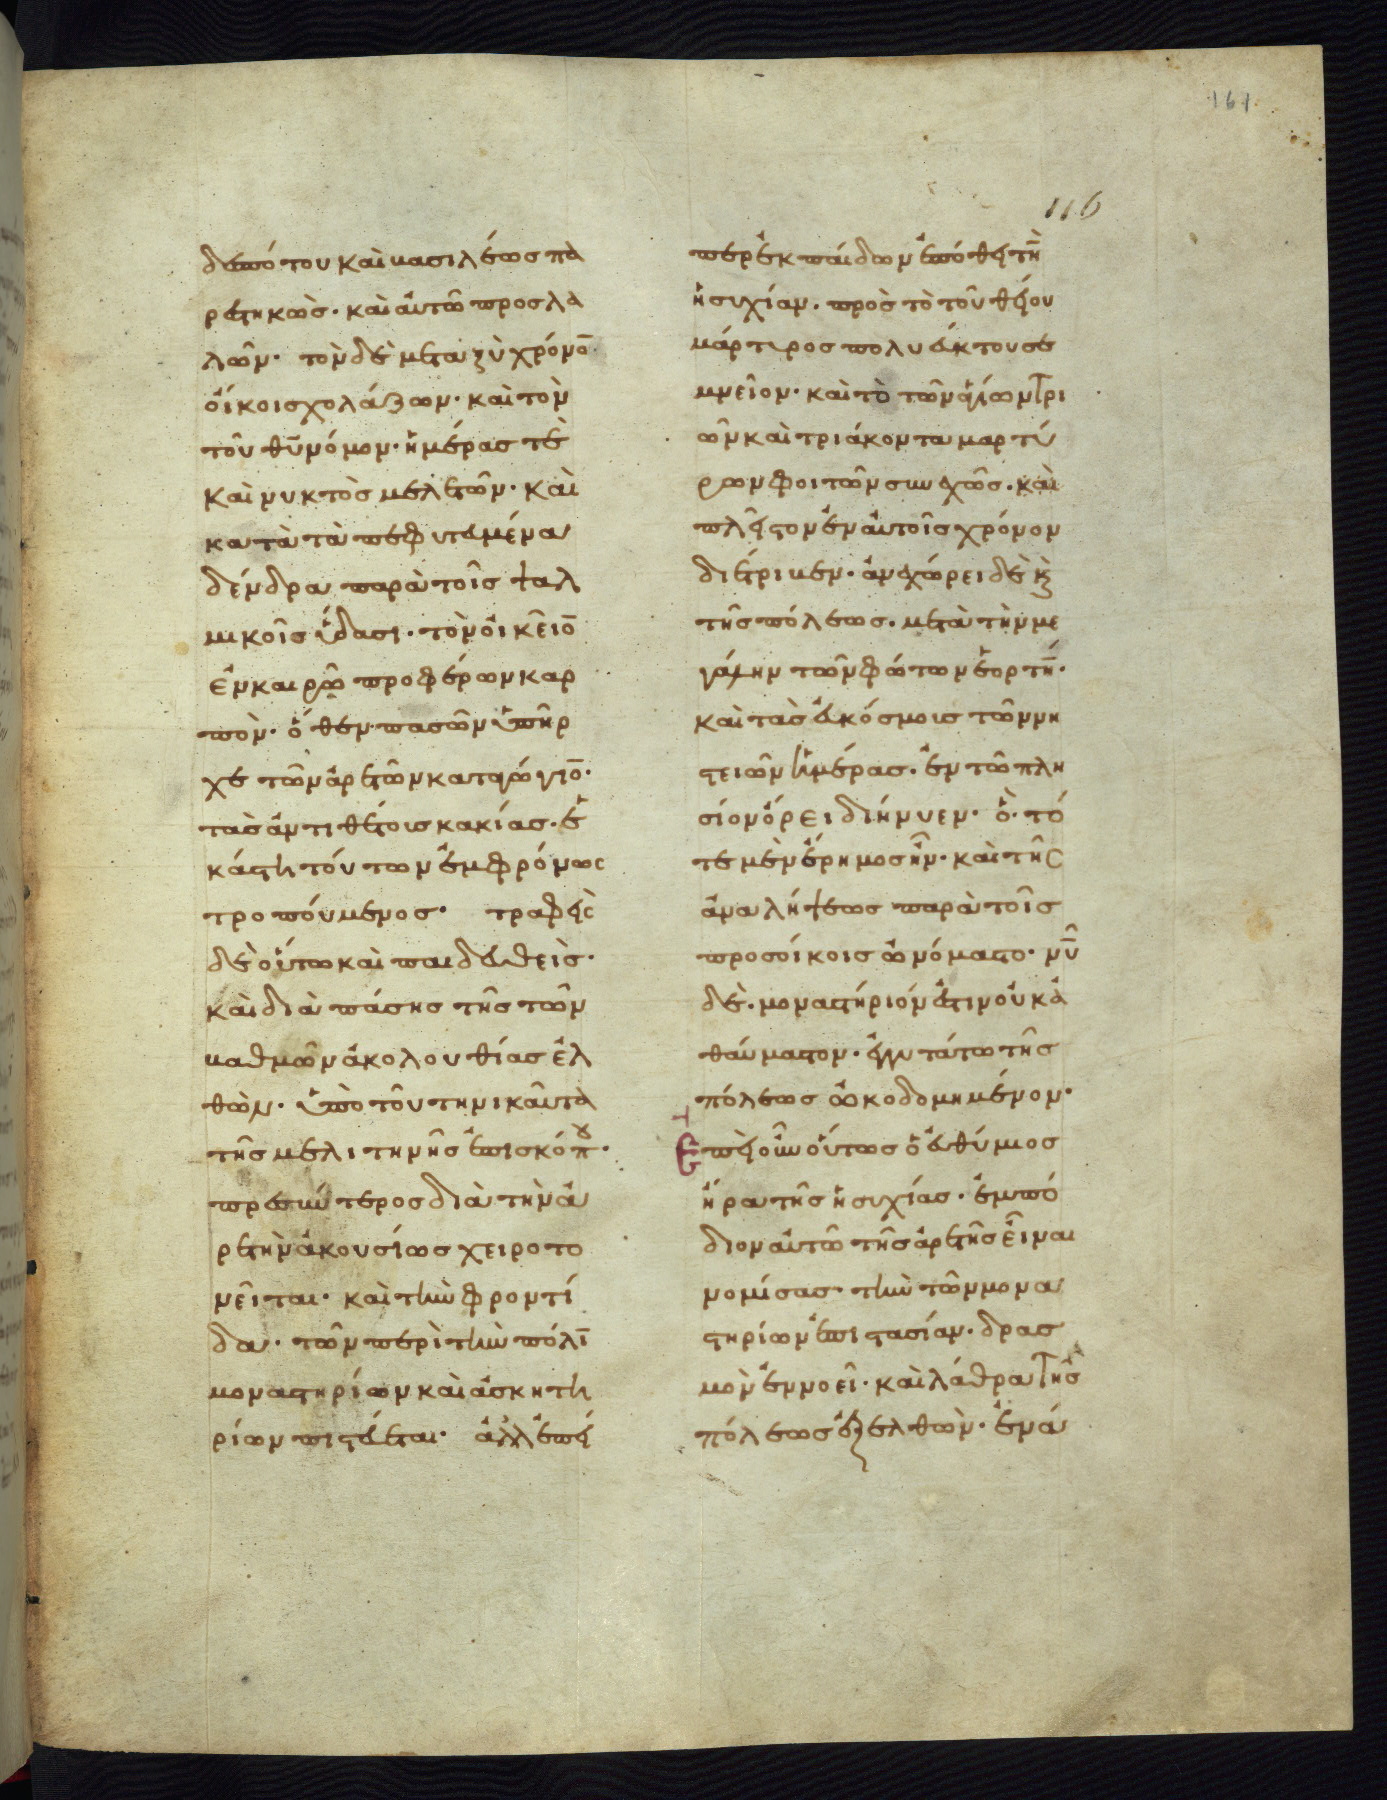 161
116
δεσπότου καὶ βασιλέως πα
ρεστηκὼς· καὶ αὐτῶ προσλα
λῶν· τὸν δὲ μεταξὺ χρόνο̅
οἴκοι σχολάζων· καὶ τὸν
τοῦ θ̅υ̅ νόμον· ἡμέρας τὲ
καὶ νυκτὸς μελετῶν· καὶ
κατὰ τὰ πεφυτευμένα
δένδρα παρὰ τοῖς ψαλ
μικοῖς ὕδασι· τὸν οἰκεῖο̅
ἐν καιρῶ προφέρων καρ
πὸν· ὅθεν πασῶν ὑπῆρ
χε τῶν ἀρετῶν καταγώγιο̅·
τὰς ἀντιθέτοις κακίας· ἑ
κάστη τούτων ἐμφρόνως
τροπούμενος· τραφεὶς
δὲ οὕτω καὶ παιδευθεὶς·
καὶ διὰ πάσης τῆς τῶν
βαθμῶν ἀκολουθίας ἐλ
θὼν· ὑπὸ τοῦ τηνικαῦτα
τῆς μελιτηνῆς ἐπισκόπου·
πρεσβύτερος διὰ τὴν ἀ
ρετὴν ἀκουσίως χειροτο
νεῖται· καὶ τὴν φροντί
δα· τῶν περὶ τὴν πόλι̅
μοναστηρίων καὶ ἀσκητη
ρίων πιστεύεται· ἀλλ' ἐπεί
περ ἐκ παίδων ἐπόθει τὴ̅
ἡσυχίαν· πρὸς τὸ τοῦ θείου
μάρτυρος πολυεύκτου σε
μνεῖον· καὶ τὸ τῶν ἁγίων τρι
ῶν καὶ τριάκοντα μαρτύ
ρων φοιτῶν συνεχῶς· καὶ
πλεῖστον ἐν αὐτοῖς χρόνον
διέτριβεν· ἀνεχώρει δὲ κ(αὶ)
τῆς πόλεως· μετὰ τὴν με
γάλην τῶν φώτων ἑορτή̅·
καὶ τὰς εὐκόσμοις τῶν νη
στειῶν ἡμέρας· ἐν τῶ πλη
σίον ὄρει διήνυεν· ὃ· τό
τε μὲν ἔρημος ἦν· καὶ τῆς
ἀναλήψεως παρὰ τοῖς
προσοίκοις ὠνόμαστο· νῦ̅
δὲ· μοναστήριόν ἐστιν οὐκ ἀ
θαύμαστον· ἐγγυτάτω τῆς
πόλεως ὠκοδομημένον·
Ἐπεὶ οὖν οὕτως ὁ εὐθύμιος
ἤρα τῆς ἡσυχίας· ἐμπό
διον αὐτῶ τῆς ἀρετῆς εἶναι
νομίσας· τὴν τῶν μονα
στηρίων ἐπιστασίαν· δρασ
μὸν ἐννοεῖ· καὶ λάθρα τῆς
πόλεως ἐξελθὼν· ἐν ἁ